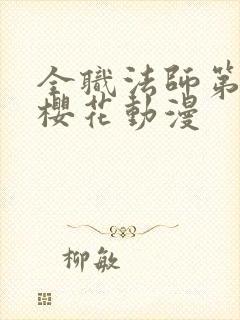 全職法師第
櫻花動漫
柳敏